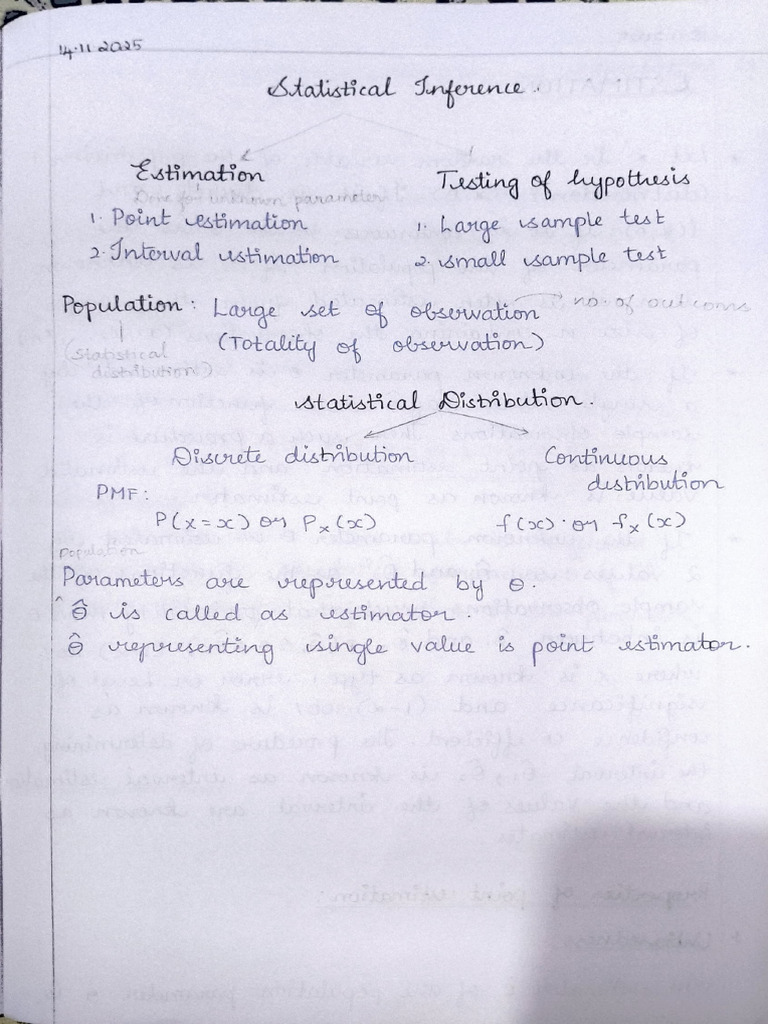 14.11.2025
Statistical Inference.
Estimation
Testing of hypothesis
Done for unknown parameter
1. Point estimation
1. Large sample test
2. Interval estimation
2. small sample test
Population : Large set of observation
no of outcomes
(Totality of observation)
(statistical distribution)
statistical Distribution
Discrete distribution
Continuous distribution
PMF:
P(X=x) or Pₓ(x)
f(x). or fₓ(x)
population
Parameters are represented by θ.
^ θ̂ is called as estimator.
θ̂ representing single value is point estimator.